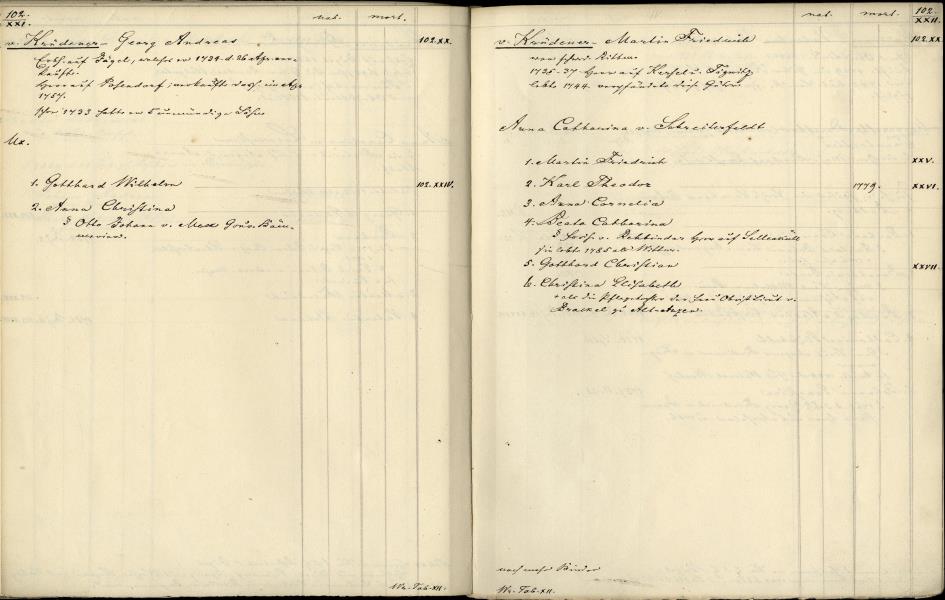 102.
XXI.
nat. mort.
v. Krüdener- Georg Andreas 102.XX.
Erbh. auf Jägel, welches er 1734 d. 26 Apr. ver-
kaufte.
Herr auf Posendorf, verkaufte dass. im Apr.
1757.
1733 hatte er 5 unmündige Söhne
Ux.
1. Gotthard Wilhelm 102.XXIV.
2. Anna Christina
§ Otto Johann v. Gouv.
Wr. Tab. XII.
nat. mort. 102.
XXII.
v. Krüdener- Martin Friedrich 102.XX
von schwed. Rittm.
1725-27 Herr auf u.
lebte 1744. verpfändete dies. Güter
Anna Catharina v. Schreiterfeldt
1. Martin Friedrich XXV.
2. Karl Theodor 1779. XXVI.
3. Anna Cornelia
4. Beata Catharina
§ v. Rehbinder Herr auf
sie lebte 1785 als Wittwe.
5. Gotthard Christian XXVII
6. Christina Elisabeth
+ als die Pflegetochter der Frau Obrist Lieut v.
Brackel zu
noch mehr Kinder
Wr. Tab. XII.